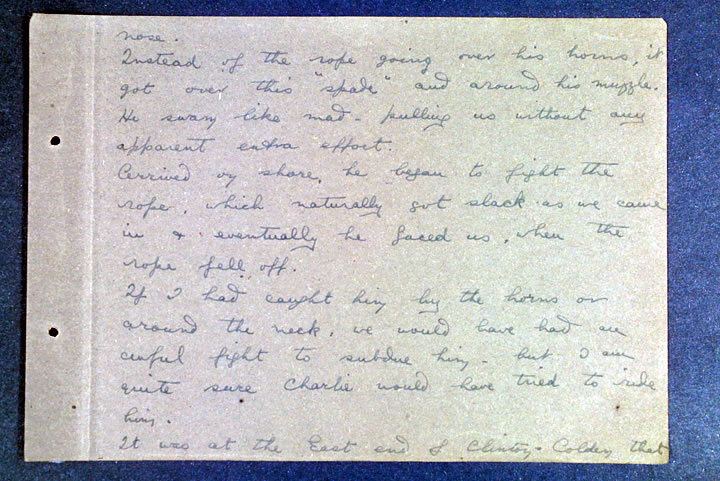 nose.
Instead of the rope going over his horns, it
got over this "spade" and around his muzzle.
He swam like mad - pulling us without any
apparent extra effort.
Arrived by shore, he began to fight the
rope, which naturally got slack as we came
in & eventually he faced us, when the
rope fell off.
If I had caught him by the horns or
around the neck, we would have had an
awful fight to subdue him - but I am
quite sure Charlie would have tried to ride
him.
It was at the East end of Clinton-Colden that